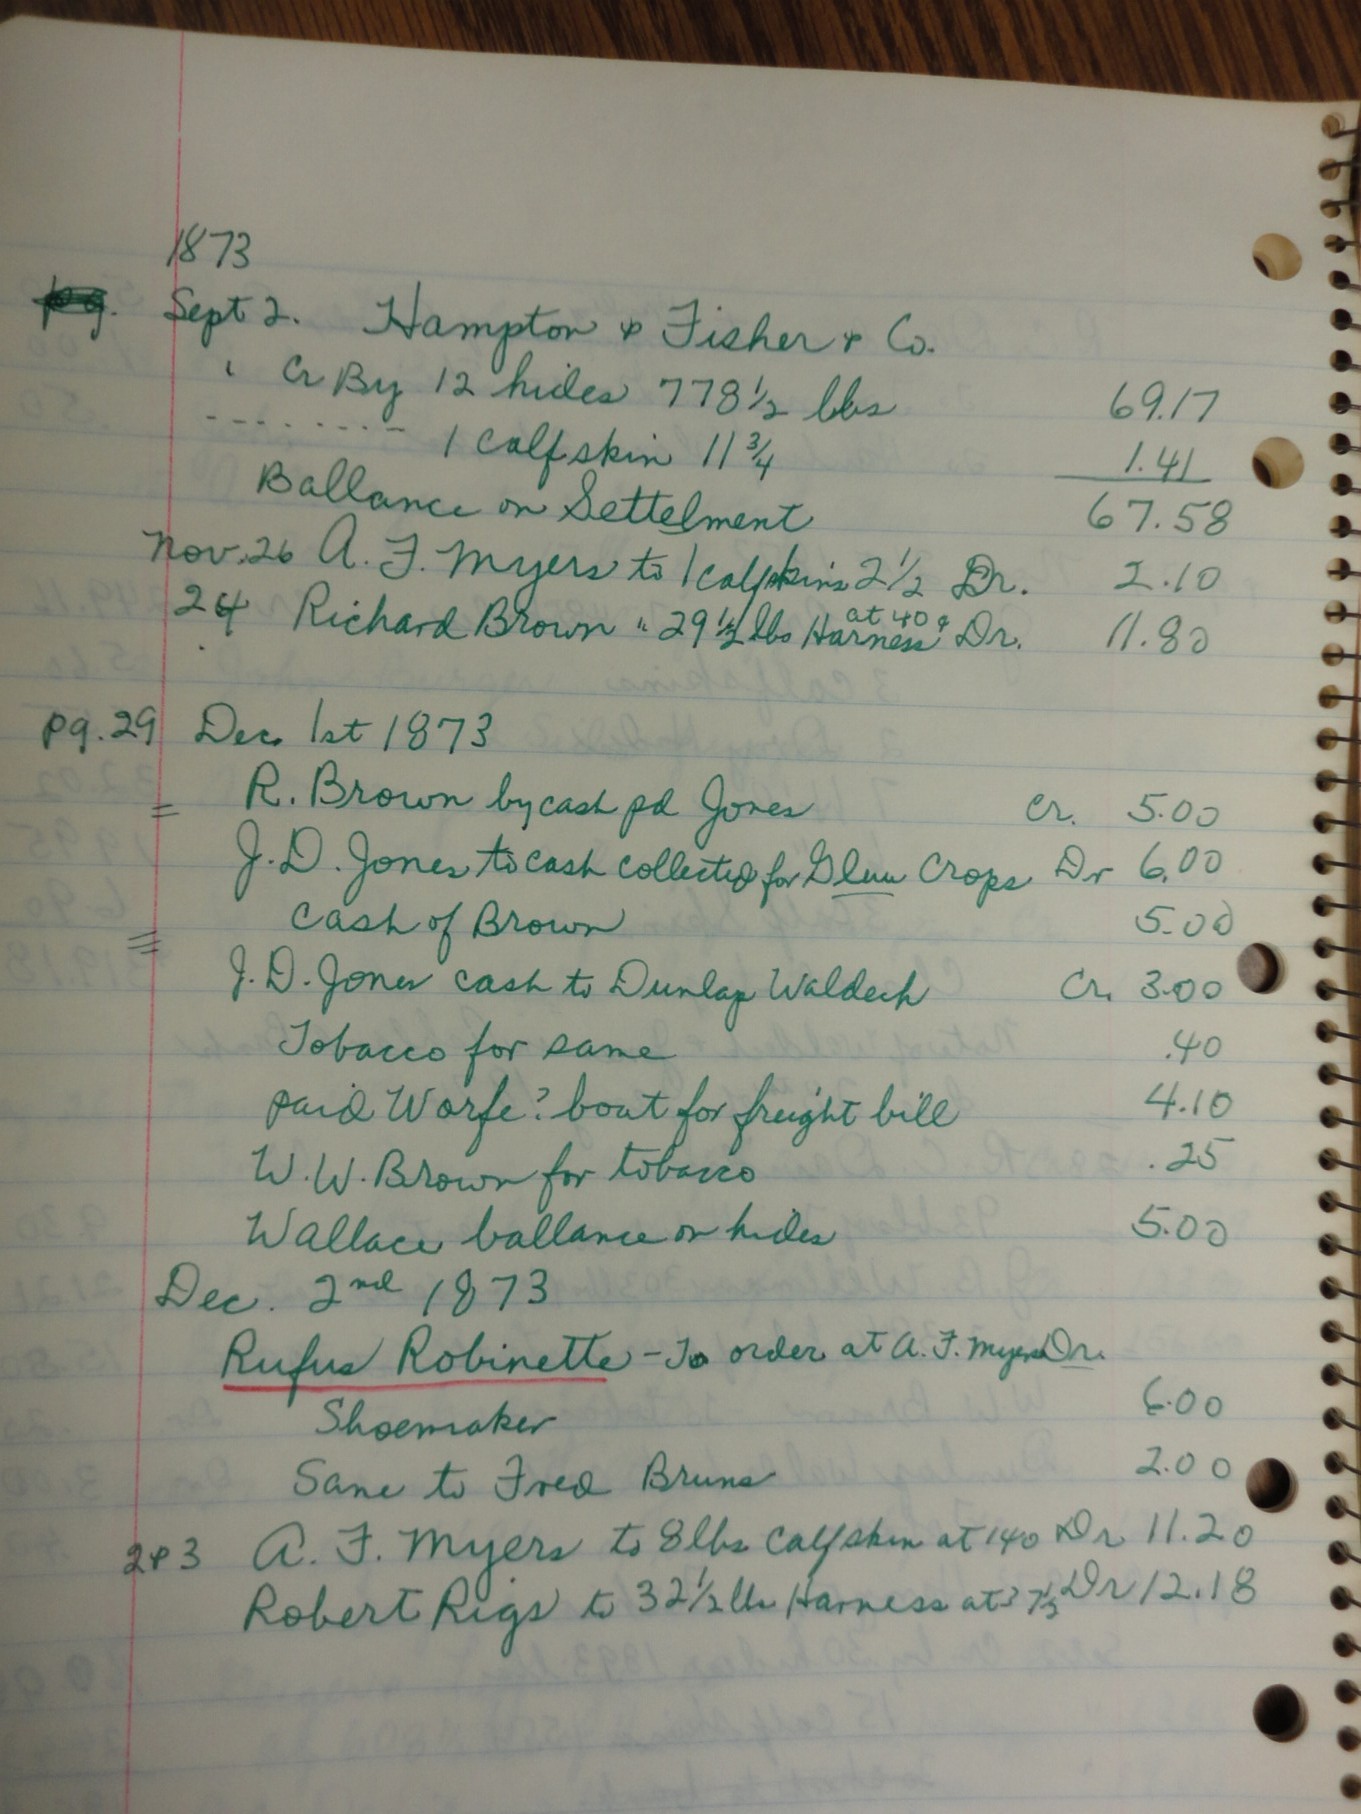 1873
pg. Sept 2. Hampton & Fisher & Co.
" Cr By 12 hides 778 1/2 lbs 69.17
-------- 1 Calfskin 11 3/4 1.41
Ballance on Settelment 67.58
Nov. 26 A. F. Myers to 1 calfskins 2 1/2 Dr. 2.10
24 Richard Brown " 29 1/2 lbs Harness at 40¢ Dr. 11.80
pg. 29 Dec. 1st 1873
= R. Brown by cash pd Jones Cr. 5.00
J. D. Jones to cash collected for Crops Dr 6.00
Cash of Brown 5.00
= J. D. Jones cash to Dunlap Waldeck Cr. 3.00
Tobacco for same .40
paid Worfe? boat for freight bill 4.10
W. W. Brown for tobacco .25
Wallace ballance on hides 5.00
Dec. 2nd 1873
Rufus Robinette - To order at A. F. Myers Dr.
Shoemaker 6.00
Same to Fred Bruns 2.00
2&3 A. F. Myers to 8 lbs Calfskin at 140 Dr 11.20
Robert Rigs to 32 1/2 lbs Harness at 37 1/2 Dr 12.18